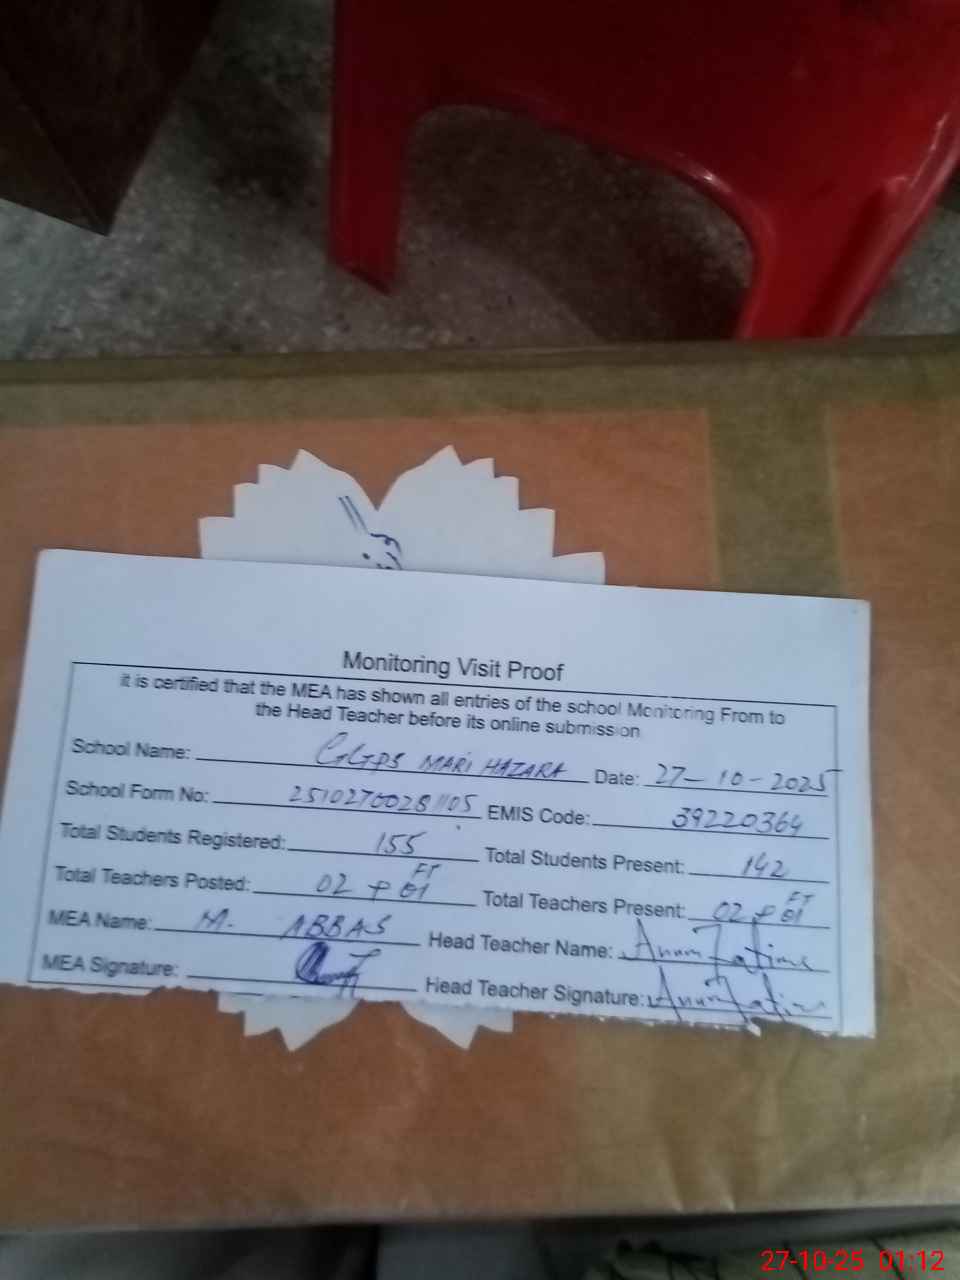 Monitoring Visit Proof
it is certified that the MEA has shown all entries of the school Monitoring From to
the Head Teacher before its online submission
School Name: GGPS MARI HAZARA Date: 27-10-2025
School Form No: 25102700281105 EMIS Code: 39220364
Total Students Registered: 155 Total Students Present: 142
Total Teachers Posted: 02 + 01 FT Total Teachers Present: 02 + 01 FT
MEA Name: M. ABBAS Head Teacher Name: Anum Fatima
MEA Signature: Head Teacher Signature: Anum Fatima
27-10-25 01:12